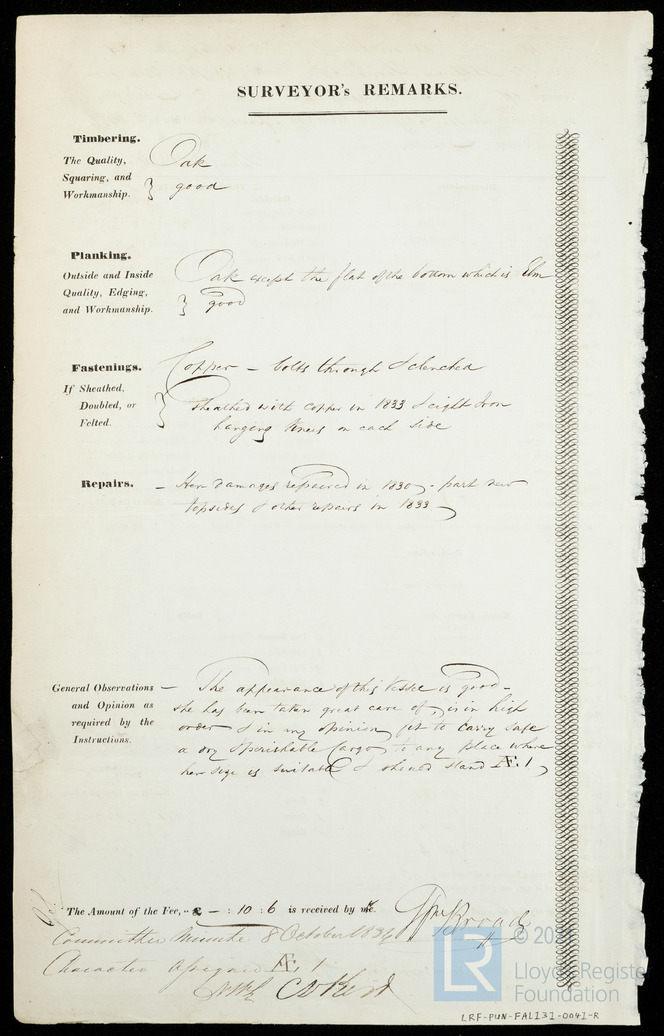 SURVEYOR's REMARKS.
Timbering.
The Quality,
Squaring, and
Workmanship.
Oak
good
Planking.
Outside and Inside
Quality, Edging,
and Workmanship.
Oak except the flat of the bottom which is Elm
good
Fastenings.
If Sheathed,
Doubled, or
Felted.
Copper – bolts through & clenched
Sheathed with copper in 1833 & eight Iron
hanging knees on each side
Repairs.
– Her damages repaired in 1830 – part new
topsides & other repairs in 1833
General Observations
and Opinion as
required by the
Instructions.
– The appearance of this vessel is good –
she has been taken great care of, is in high
order & in my opinion fit to carry safe
a dry & perishable Cargo to any place where
her size is suitable & should stand Æ: 1
The Amount of the Fee, - £ – : 10 : 6 is received by me.
Wm Broad
Committee Minute 8 October 1834
Character assigned Æ 1
© 202
LR
Lloyd's Register
Foundation
LRF-PUN-FAL131-0041-R